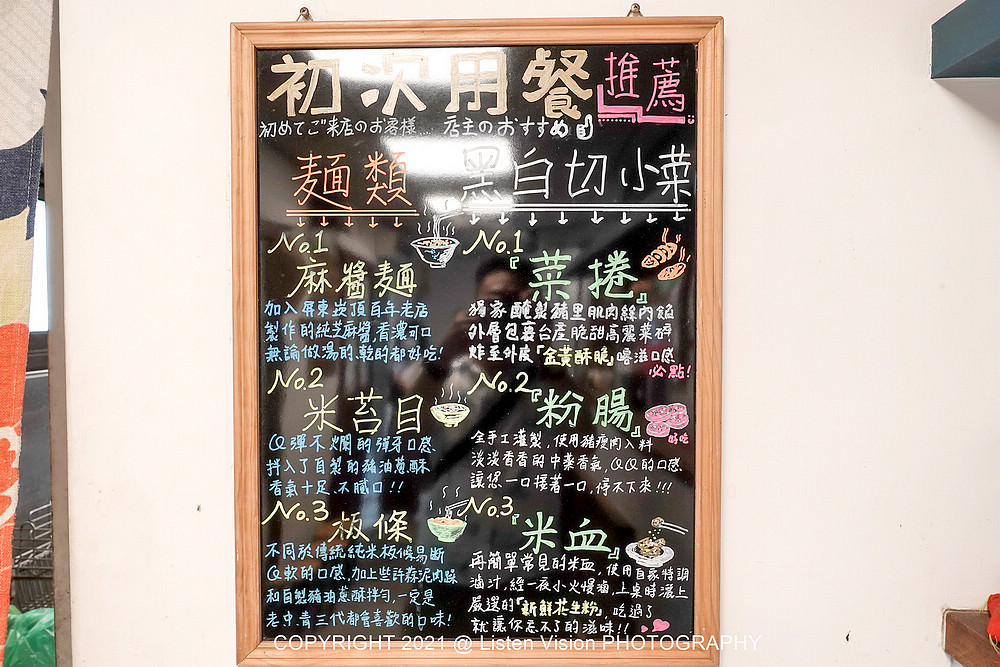 初次用餐推薦
初めてご来店のお客様... 店主のおすすめ
麵類
No.1
麻醬麵
加入屏東崁頂百年老店
製作的純芝麻醬,香濃可口
無論做湯的.乾的都好吃!
No.2
米苔目
QQ彈不爛的彈牙口感
拌入了自製的豬油蔥酥
香氣十足.不膩口!!
No.3
板條
不同於傳統純米板條易斷
Q軟的口感,加上些許蒜泥肉燥
和自製豬油蔥酥拌勻,一定是
老中青三代都會喜歡的口味!
黑白切小菜
No.1
『菜捲』
獨家醃製豬里肌肉絲內餡
外層包裹台產脆甜高麗菜
炸至外皮「金黃酥脆」 口感
必點!
No.2
『粉腸』
好吃
全手工灌製,使用豬瘦肉入料
淡淡香香的中藥香氣,QQ的口感
讓您一口接著一口,停不下來!!!
No.3
『米血』
再簡單常見的米血,使用自家特調
滷汁,經一夜小火慢滷,上桌時灑上
嚴選的「新鮮花生粉」,吃過了
就讓你忘不了的滋味!!
COPYRIGHT 2021 @ Listen Vision PHOTOGRAPHY